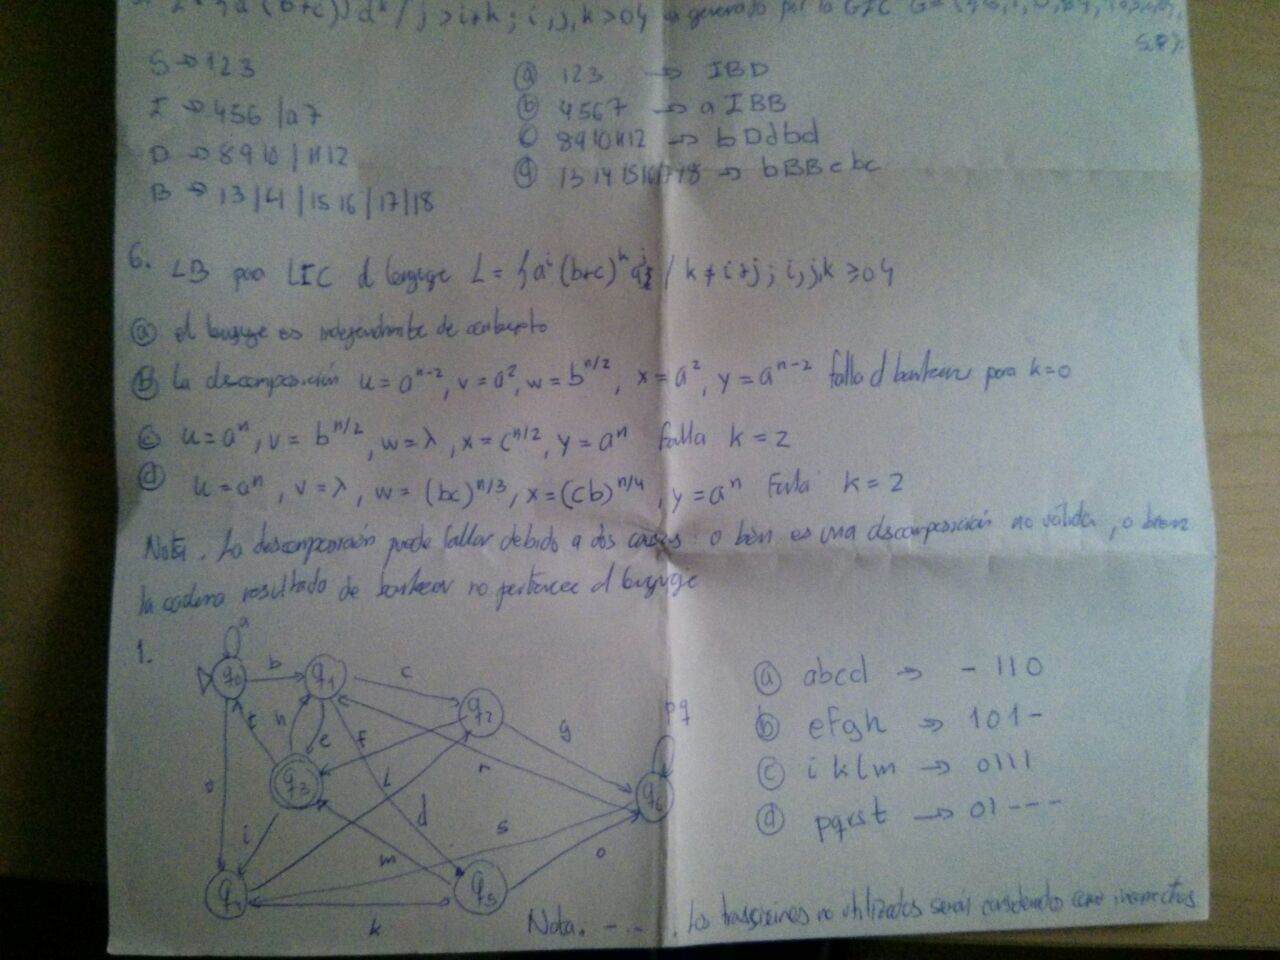 (b+c)) d^k / j > i+k ; i, j, k > 0 } generado por la GIC G=
S,P).
S → 123
I → 456 | a7
D → 8910 | 1112
B → 13 | 14 | 15 16 | 17 | 18
ⓐ 123 → IBD
ⓑ 4567 → aIBB
ⓒ 89101112 → bDdbd
ⓓ 131415161718 → bBBcbc
6. LB para LIC el lenguaje L = { a^i (b+c)^k a^j / k ≠ i+j ; i,j,k ≥ 0 }
ⓐ el lenguaje es independiente de contexto
ⓑ la descomposición u = a^{n-2}, v = a^2, w = b^{n/2}, x = a^2, y = a^{n-2} falla el bombeo para k=0
ⓒ u = a^n, v = b^{n/2}, w = λ, x = c^{n/2}, y = a^n falla k = 2
ⓓ u = a^n, v = λ, w = (bc)^{n/3}, x = (cb)^{n/4}, y = a^n Falla k = 2
Nota. La descomposición puede fallar debido a dos casos: o bien es una descomposición no válida, o bien
la cadena resultado de bombear no pertenece al lenguaje
1.
a
q0 b q1 c q2
t h e f g pq
q3 l r q6
i d s
m o
q5
k
ⓐ abcd → - 110
ⓑ efgh → 101-
ⓒ iklm → 0111
ⓓ pqrst → 01---
Nota. - ... . Las transiciones no utilizadas serán consideradas como incorrectas